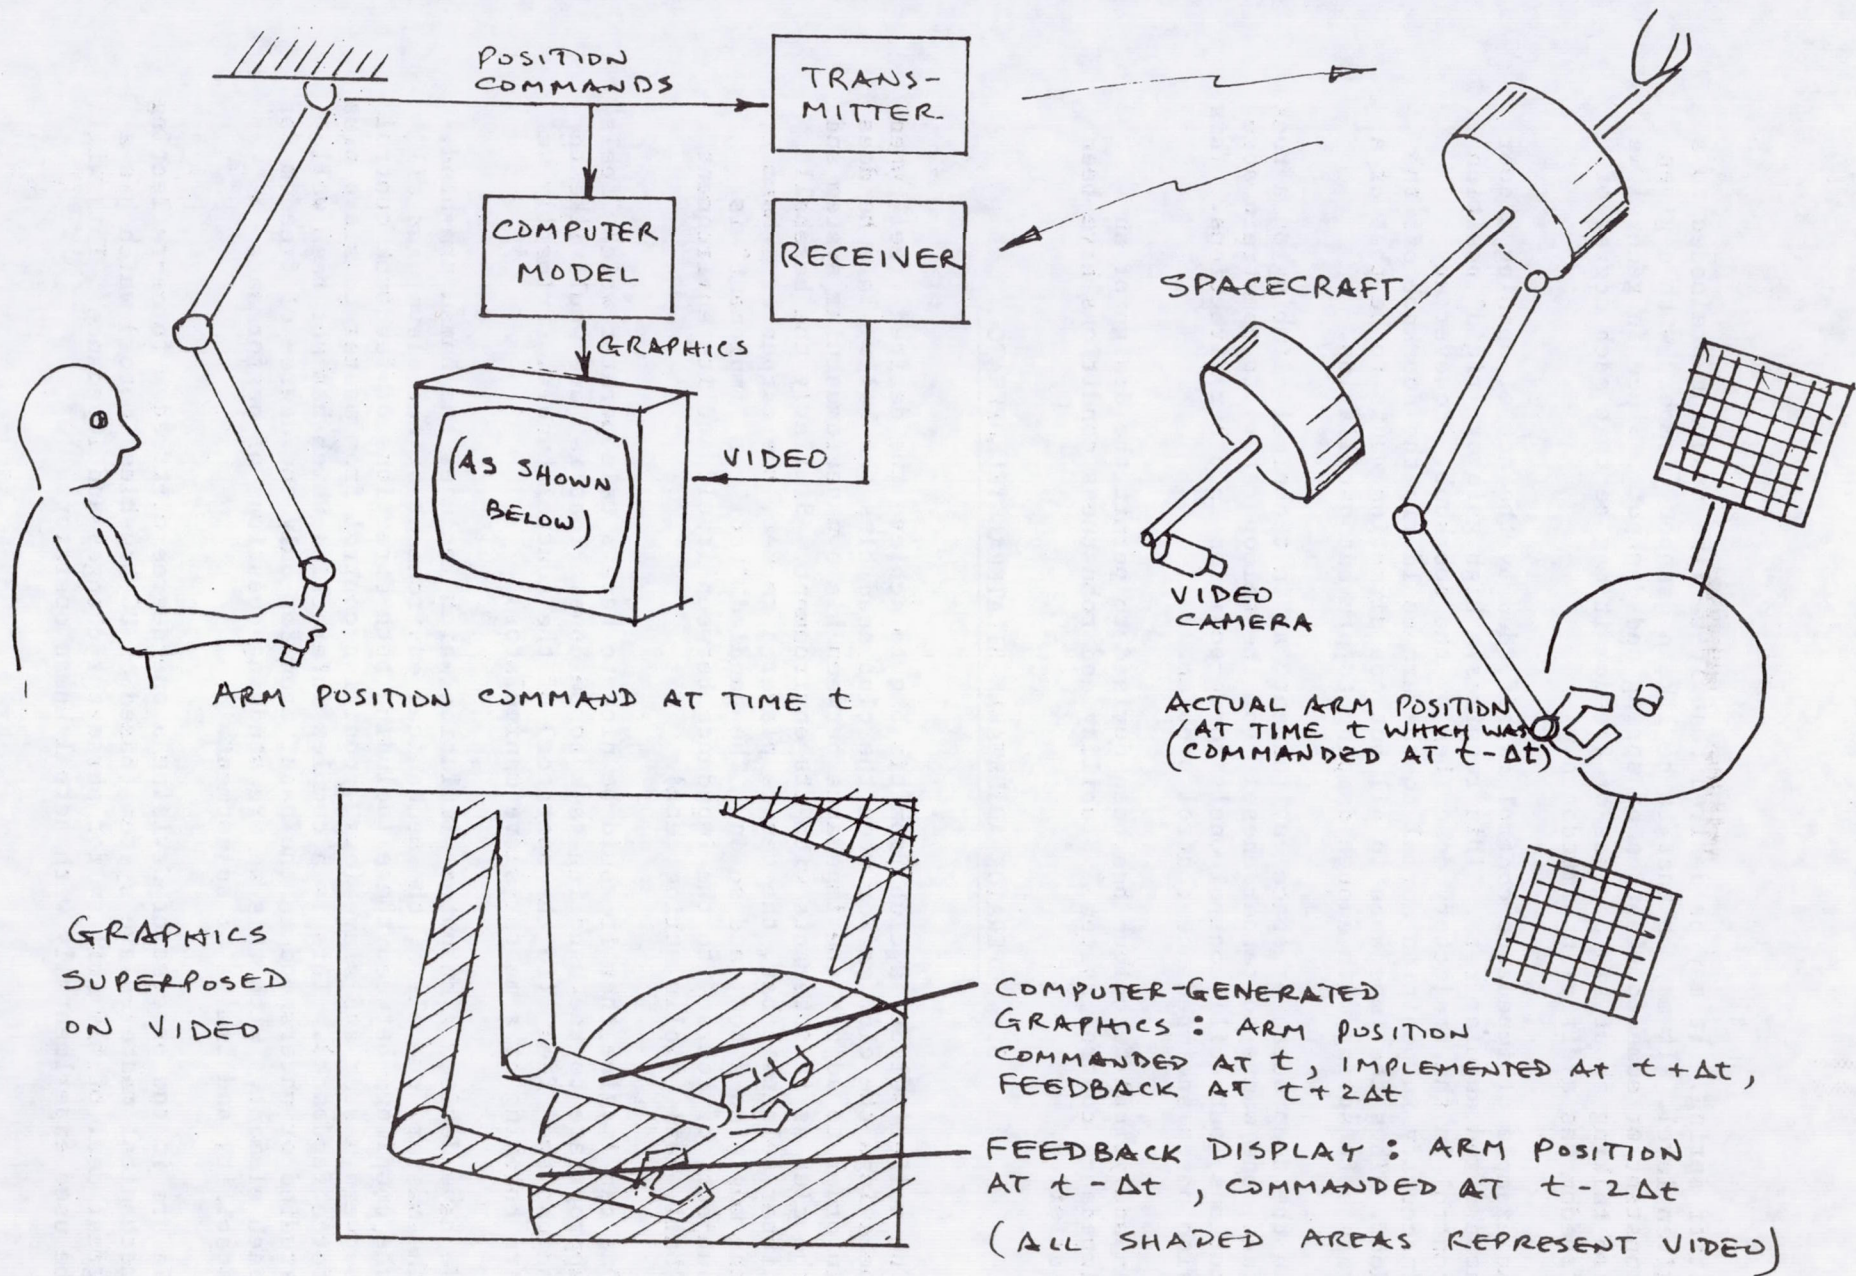 POSITION
COMMANDS
TRANS-
MITTER
COMPUTER
MODEL
RECEIVER
GRAPHICS
VIDEO
(AS SHOWN
BELOW)
SPACECRAFT
VIDEO
CAMERA
ARM POSITION COMMAND AT TIME t
ACTUAL ARM POSITION
(AT TIME t WHICH WAS
(COMMANDED AT t-Δt)
GRAPHICS
SUPERPOSED
ON VIDEO
COMPUTER-GENERATED
GRAPHICS: ARM POSITION
COMMANDED AT t, IMPLEMENTED AT t+Δt,
FEEDBACK AT t+2Δt
FEEDBACK DISPLAY: ARM POSITION
AT t-Δt, COMMANDED AT t-2Δt
(ALL SHADED AREAS REPRESENT VIDEO)